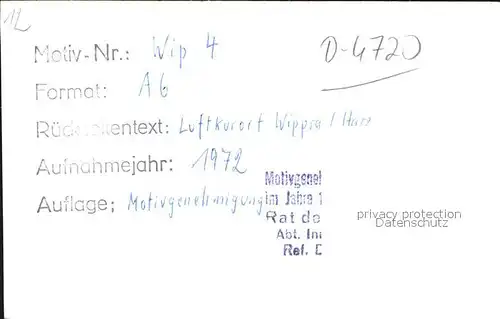 12
D-4720
Motiv-Nr.: Wip 4
Format: A6
Rückseitentext: Luftkurort Wippra / Harz
Aufnahmejahr: 1972
Auflage: Motivgenehmigung
Motivgeneh
im Jahre 1
Rat de
Abt. Inn
Ref. E
privacy protection
Datenschutz